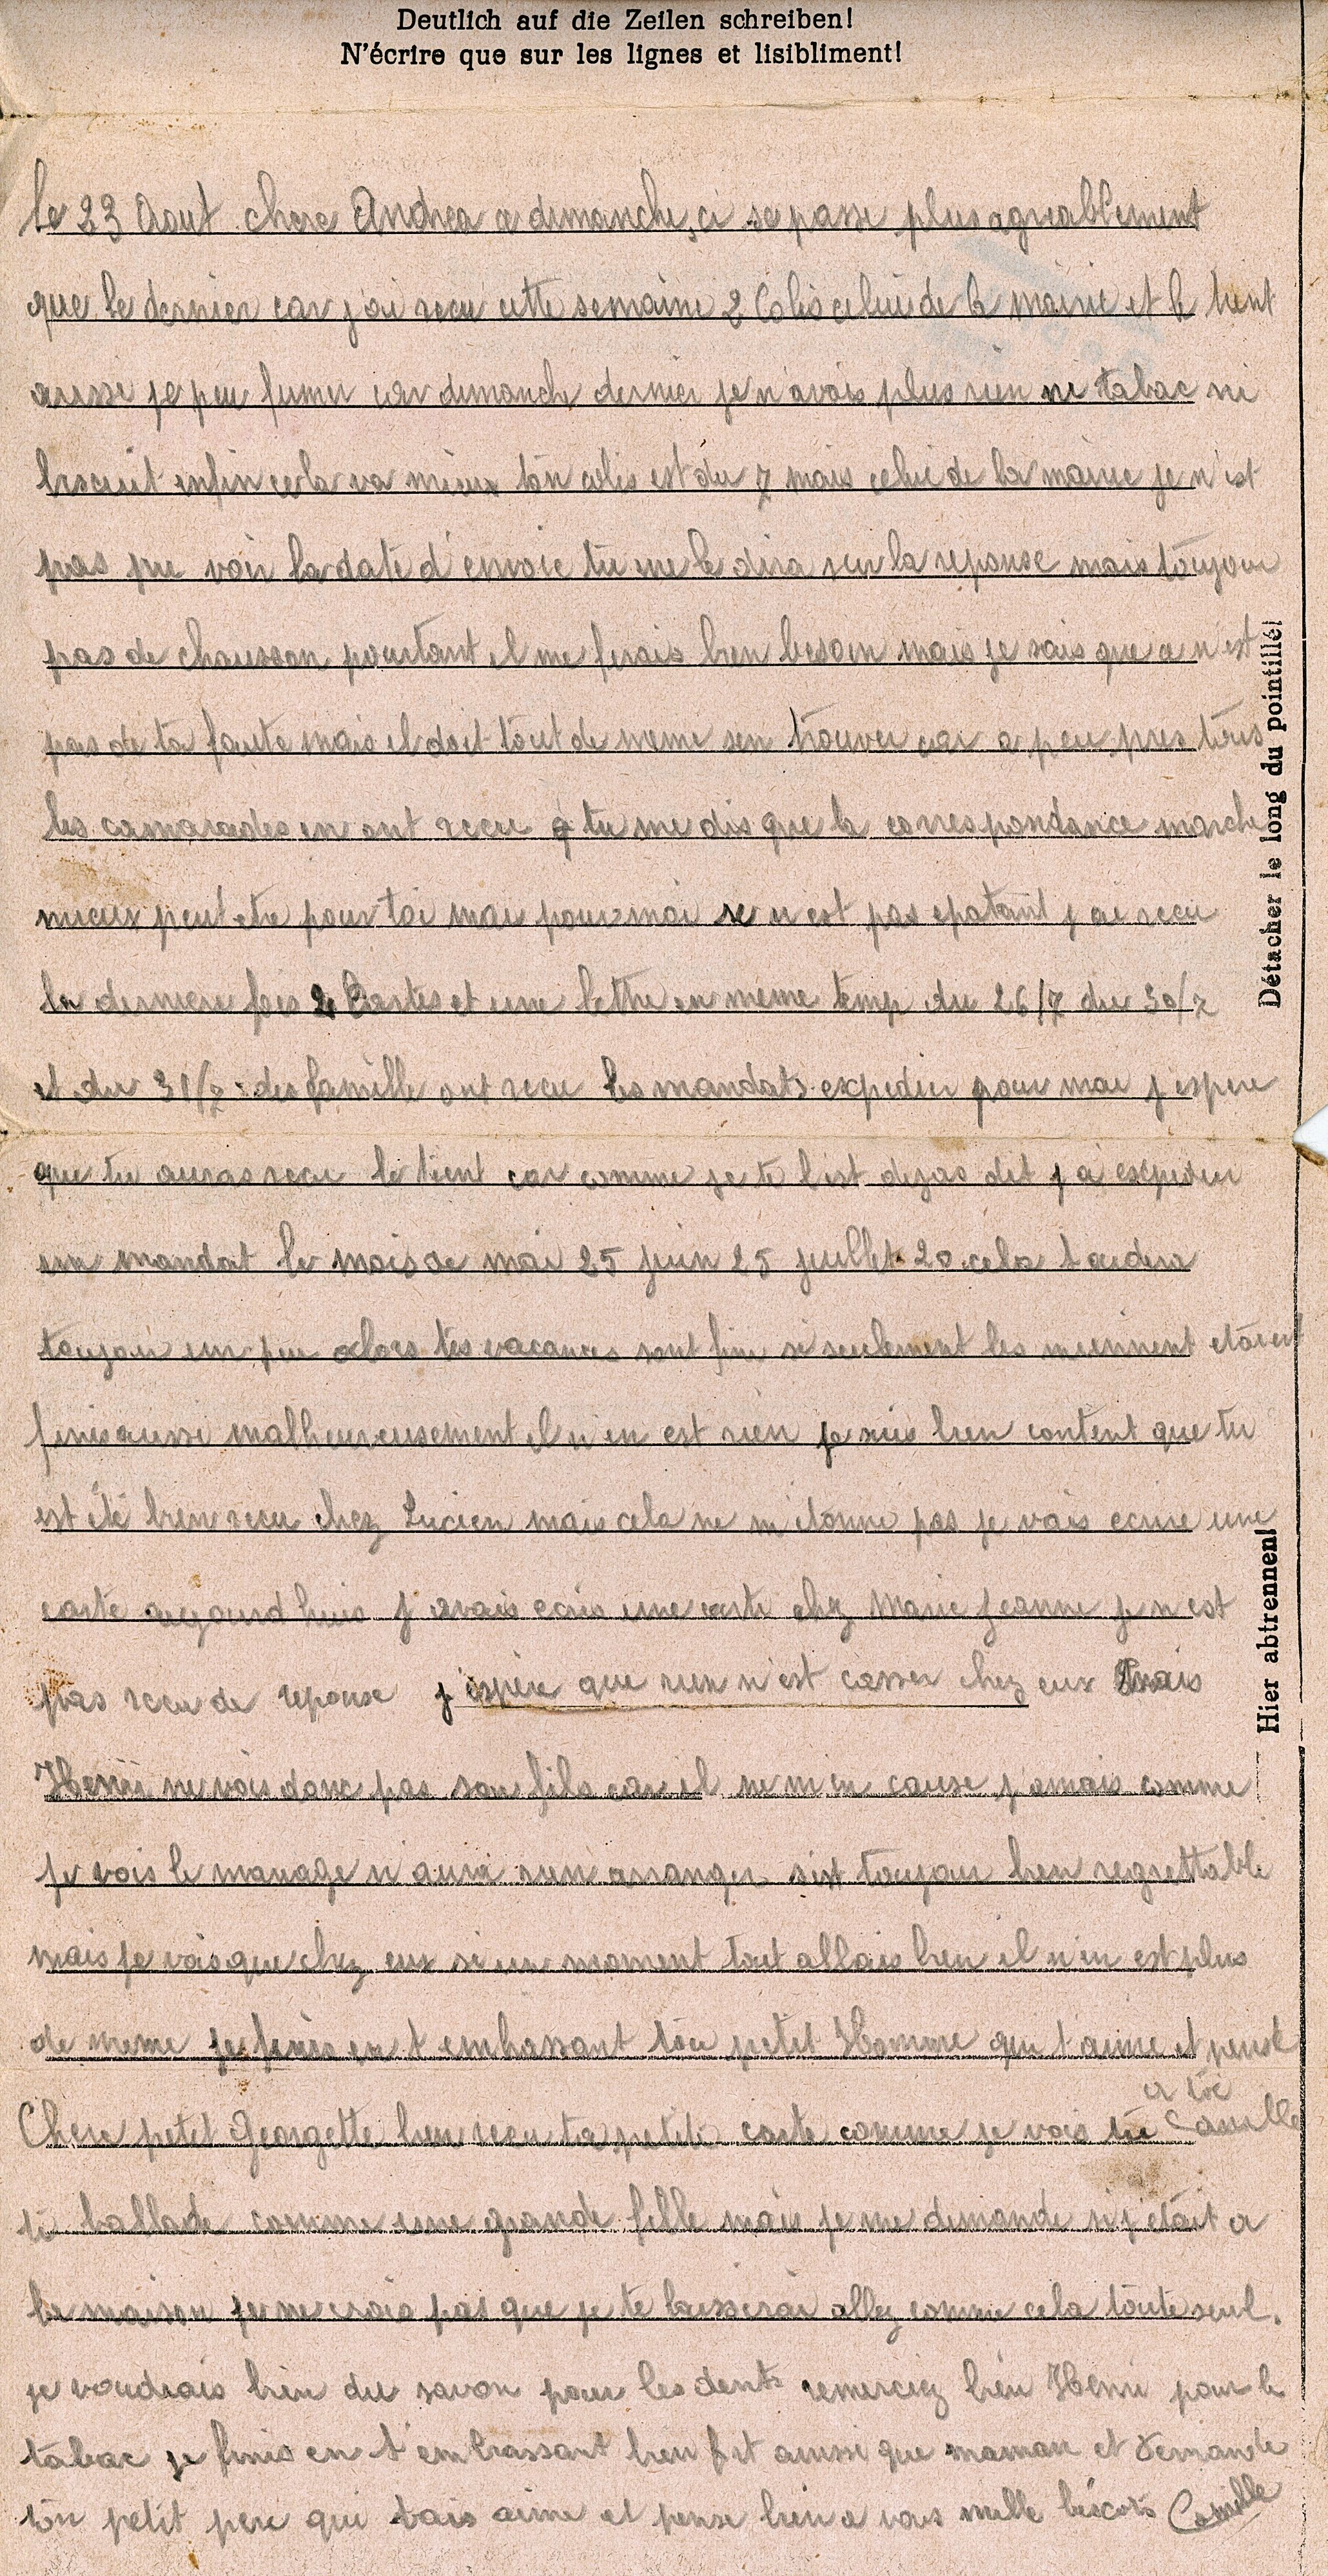 Deutlich auf die Zeilen schreiben!
N'écrire que sur les lignes et lisibliment!
le 23 Aout chere Andrea ce dimanche ci se passe plus agreablement
que le dernier car j ai recu cette semaine 2 Colis celui de la mairie et le tient
aussi je peu fumer car dimanche dernier je n'avais plus rien ni tabac ni
biscuit enfin cela va mieux ton colis est du 7 mais celui de la mairie je n'est
pas pu voir la date d'envoie tu me le dira sur la reponse mais toujour
pas de chausson pourtant il me ferais bien besoin mais je sais que ce n'est
pas de ta faute mais il doit tout de meme sen trouver car a peu pres tous
les camarades en ont recu tu me dis que la correspondance marche
mieux peut etre pour toi mais pour moi se n est pas epatant j ai recu
la derniere fois 2 Cartes et une lettre en meme temp du 26/7 du 30/7
et du 31/7 des famille ont recu les mandats expedier pour mai j espere
que tu auras recu le tient car comme je te l'est dejas dit j ai expedier
un mandat le mois de mai 25 juin 25 juillet 20 cela tardera
toujour un peu alors tes vacances sont fini si seulement les miennent etaient
finis aussi malheureusement il n'en est rien je suis bien content que tu
est été bien recu chez Lucien mais cela ne m étonne pas je vais ecrire une
carte aujourd huis j avais ecris une carte chez Marie Jeanne je n est
pas recu de reponse j'espère que rien n'est casser chez eux Mais
Henri ne vois donc pas son fils car il ne m'en cause jamais comme
je vois le mariage n aura rien arranger sest toujour bien regrettable
mais je vois que chez eux si un moment tout allais bien il n'en est plus
de meme je finis en t embrassant ton petit Homme qui t aime et pense
a toi
Chere petit Georgette bien recu ta petite carte comme je vois tu Camille
te ballade comme une grande fille mais je me demande si j'etait a
la maison je ne crois pas que je te laisserai allez comme cela toute seul.
je voudrais bien du savon pour les dents remerciez bien Henri pour le
tabac je finis en t'embrassant bien fort ainsi que maman et
ton petit pere qui vais aime et pense bien a vous mille bécots Camille
Détacher le long du pointillé!
Hier abtrennen!